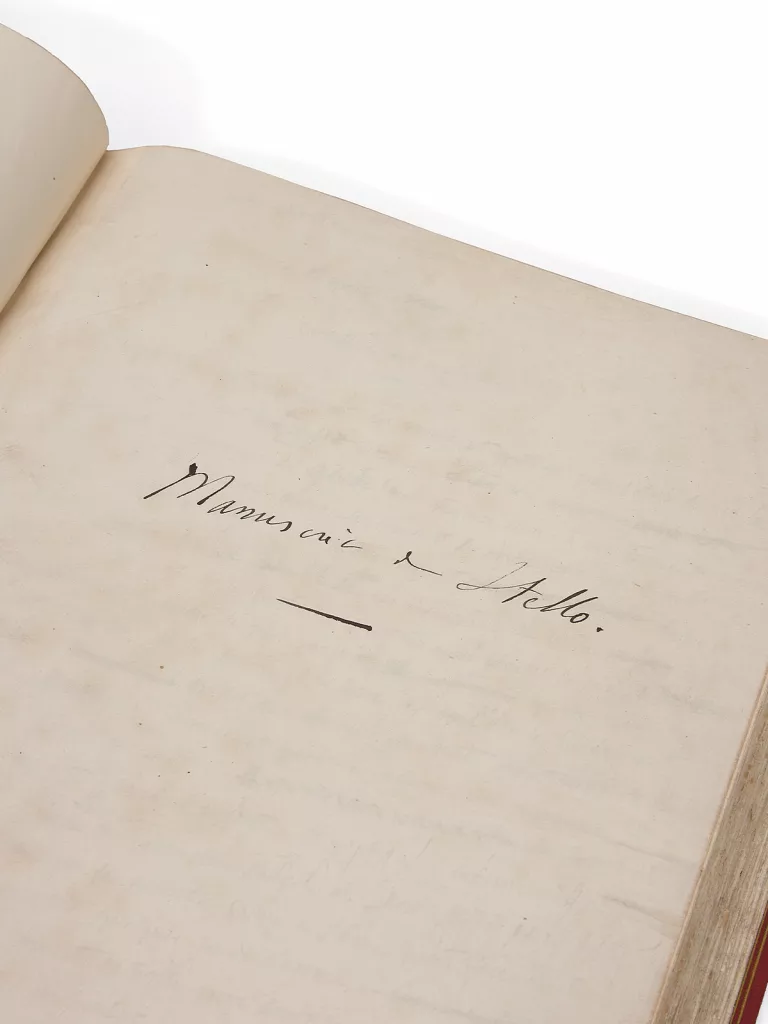 Manuscrit de Stello.